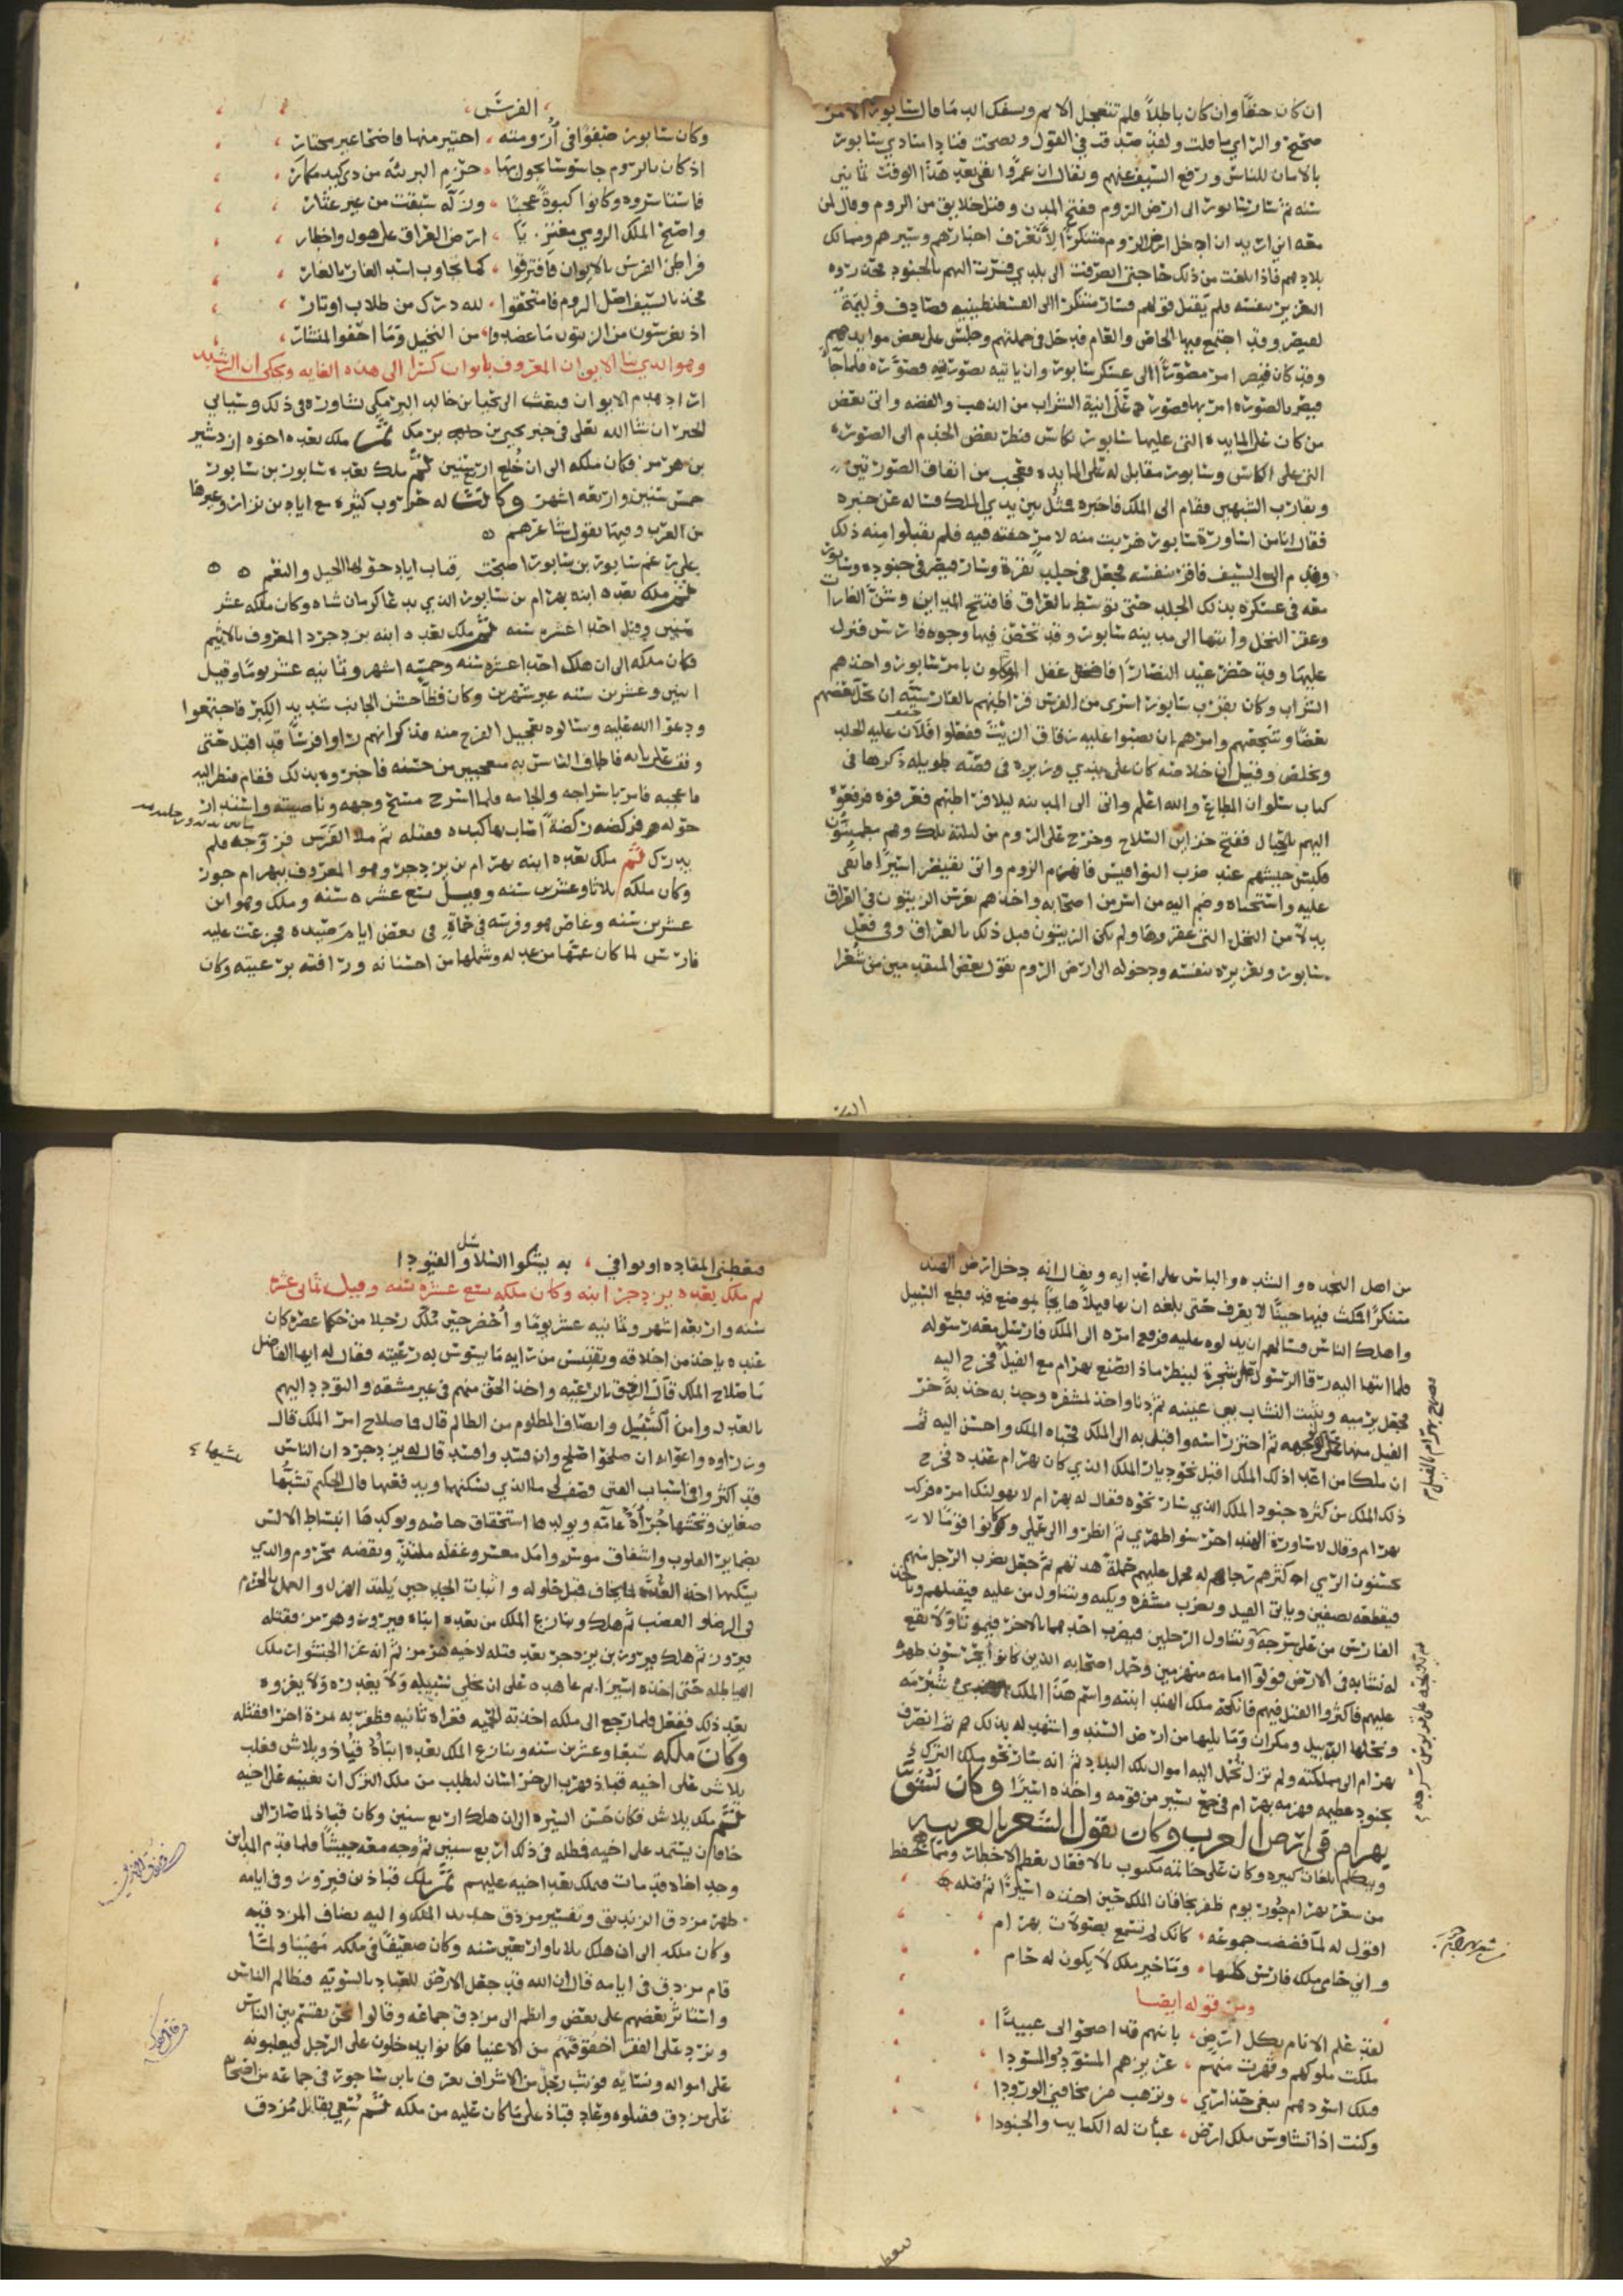 ان كان حقًا وان كان باطلاً فلم تتعجل الاثم وسفك الدما قال سابور الامر
صحيح والراي ما قلت ولقد صدقت في القول ونصحت فنادا منادي سابور
بالامان للناس ورفع السيف عنهم ويقال ان عمروا بقي بعد هذا الوقت ثمانين
سنه ثم سار سابور الى ارض الروم ففتح المدن وقتل خلايق من الروم وقال لمن
معه اني اريد ان ادخل ارض الروم متنكرًا لأتعرف اخبارهم وسيرهم ومسالك
بلادهم فاذا بلغت من ذلك حاجتى انصرفت الى بلدي فسرت اليهم بالجنود فحذروه
التغرير بنفسه فلم يقبل قولهم فسار متنكرا الى القسطنطينيه فصادف وليمة
لقيصر وقد اجتمع فيها الخاص والعام فدخل في جملتهم وجلس على بعض موايدهم
وقد كان قيصر امر مصورًا الى عسكر سابور وان ياتيه بصورته فصوره فلما جا
قيصر بالصوره امر بها فصورت على انية الشراب من الذهب والفضه واتى بعض
من كان على المايده التى عليها سابور بكاس فنظر بعض الخدم الى الصوره
التى على الكاس وسابور مقابل له على المايده فعجب من اتفاق الصورتين
وتقارب الشبهين فقام الى الملك فاخبره فمثل بين يدي الملك فساله عن خبره
فقال انا من اساورة سابور هربت منه لامرٍ خفته فيه فلم يقبلوا منه ذلك
وقدم الى السيف فاقر بنفسه فجعل في جلد بقرة وسار قيصر في جنوده وسابور
معه في عسكره بذلك الجلد حتى توسط بالعراق فافتتح المداين وشن الغارات
وعقر النخل وانتها الى مدينه سابور وقد تحصن فيها وجوه فارس فنزل
عليها وقد حضر عيد النصارا فاغفل الموكلون بامر سابور واخذهم
الشراب وكان بقرب سابور اسرى من الفرس فراطنهم بالفارسيّه ان يحل بعضهم
بعضًا وشجعهم وامرهم ان يصبوا عليه زقاق الزيت ففعلوا فلان عليه الجلد
وتخلص وقيل ان خلاصه كان على يدي وزيره في قصه طويله ذكرها في
كتاب سلوان المطاع والله اعلم واتى الى المدينه ليلا فراطنهم فعرفوه فرفعوه
اليهم بالحبال ففتح خزاين السلاح وخرج على الروم من ليلته تلك وهم مطمينون
فكبس جيشهم عند ضرب النواقيس فانهزم الروم واتى بقيصر اسيرًا فابقى
عليه واستحياه وضم اليه من اسر من اصحابه واخذهم بغرس الزيتون في العراق
بدلاً من النخل التى عقروها ولم يكن الزيتون قبل ذلك بالعراق وفي فعل
سابور وتغريره بنفسه ودخوله الى ارض الروم يقول بعض المتقدمين من شعرا
الفرس
وكان سابور صفوًا في أرومته ، اختير منها فاضحا غير مختار
اذ كان بالروم جاسوسًا يجول بها ، حزم البريئه من ذي كيد مكار
فاستاسروه وكانوا كبوةً عجبًا ، وزلة سبقت من غير عثار
واصبح الملك الرومي مغتربًا ، ارض العراق على هول واخطار
فراطن الفرس بالايوان فافترقوا ، كما تجاوب اسد الغار بالغار
فجذ بالسيف اصل الروم فامتحقوا ، لله درك من طلاب اوتار
اذ يغرسون من الزيتون ما عضدوا ، من النخيل وما احقوا بمنشار
وهو الذي بنا الايوان المعروف بايوان كسرا الى هذه الغايه ويحكى ان الرشيد
اراد هدم الايوان فبعث الى يحيا بن خالد البرمكي يشاوره في ذلك وسياتي
الخبر ان شا الله تعلى في خبر يحيى بن خالد بن برمك ثم ملك بعده اخوه اردشير
بن هرمز فكان ملكه الى ان خُلع اربع سنين ثم ملك بعده سابور بن سابور
خمس سنين واربعه اشهر وكانت له حروب كثيره مع اياد بن نزار وغيرها
من العرب وفيها يقول شاعرهم
على رغم سابور بن سابور اصبحت قباب اياد حولها الخيل والنعم
ثم ملك بعده ابنه بهرام بن سابور الذي يدعا كرمان شاه وكان ملكه عشر
سنين وقيل احد اعشره سنه ثم ملك بعده ابنه يزدجرد المعروف بالاثيم
فكان ملكه الى ان هلك احد اعشره سنه وخمسه اشهر وثمانيه عشر يومًا وقيل
اثنين وعشرين سنه غير شهرين وكان فظًّا خشن الجانب شديد الكبر فاجتمعوا
ودعوا الله عليه وسالوه تعجيل الفرج منه فذكر انهم راوا فرسًا قد اقبل حتى
وقف على بابه فاطاف الناس به متعجبين من حسنه فاخبروه بذلك فقام فنظر اليه
فاعجبه فامر باسراجه والجامه فلما اسرج مسح وجهه وناصيته واستدار
حوله فركضه ركضةً اصاب بها كبده فقتله ثم ملا الفرس فروجه فلم
يدرك ثم ملك بعده ابنه بهرام بن يزدجرد وهو المعروف ببهرام جور
وكان ملكه ثلاثا وعشرين سنه وقيل تسع عشره سنه وملك وهو ابن
عشرين سنه وغاص هو وفرسه في حماةٍ في بعض ايام صيده فجزعت عليه
فارس لما كان عمها من عدله وشملها من احسانه ورافته برعيته وكان
من اهل النجده والشده والباس على اعدايه ويقال انه دخل ارض الهند
متنكرًا فمكث فيها حينًا لا يعرف حتى بلغه ان بها فيلاً هايجًا بموضع قد قطع السبيل
واهلك الناس فسالهم ان يدلوه عليه فرفع امره الى الملك فارسل معه رسوله
فلما انتها اليه رقا الرسول على شجرة لينظر ماذا يصنع بهرام مع الفيل فخرج اليه
فجعل يرميه ويثبت النشاب بين عينيه ثم دنا واخذ لمشفره وجذبه جذبةً خر
الفيل منها على وجهه ثم احتز راسه واقبل به الى الملك فحباه الملك واحسن اليه ثم
ان ملكا من اعدا ذلك الملك اقبل نحو ديار الملك الذي كان بهرام عنده فخرج
ذلك الملك من كثره جنود الملك الذي سار نحوه فقال له بهرام لا يهولنك امره فركب
بهرام وقال لاساورة الهند احرسوا ظهري ثم انظروا الى عملي وكانوا قومًا لا
يحسنون الرمي اكثرهم رجالهم له فحمل عليهم حملةً هدتهم ثم جعل يضرب الرجل منهم
فيقطعه نصفين وياتى الفيل ويضرب مشفره ويكبه ويتناول من عليه فيقتلهم وياخذ
الفارس من على سرجه ويتناول الرجلين فيضرب احدهما بالاخر فيموتا ولا يقع
له نشابه في الارض فولوا امامه منهزمين وحمل اصحابه الذين كانوا يحرسون ظهره
عليهم فاكثروا القتل فيهم فانكحه ملك الهند ابنته واسم هذا الملك شبرمه
ونحلها الديبل ومكران وما يليها من ارض السند واشهد له بذلك ثم انصرف
بهرام الى مملكته ولم تزل تحمل اليه اموال تلك البلاد ثم انه سار نحو ملك الترك
بجنود عظيمه فهزمه بهرام في جمع يسير من قومه واخذه اسيرًا وكان نشو
بهرام في ارض العرب وكان يقول الشعر بالعربيه
ويتكلم بلغات كثيره وكان على خاتمه مكتوب بالافعال تعظم الاخطار ومما يحفظ
من شعر بهرام جُور يوم ظفر بخاقان الملك حين اخذه اسيرًا ثم قتله
اقول له لما فضضت جموعه ، كانك لم تسمع بصولات بهرام
واني حامي ملك فارس كلها ، وما خير ملك لا يكون له حام
ومن قوله ايضا
لقد علم الانام بكل ارضٍ ، بانهم قد اضحوا لى عبيدًا
ملكت ملوكهم وقهرت منهم ، عزيزهم المسوّد والمسودا
فتلك اسودهم تبغى حذاري ، وترهب من مخافتي الورودا
وكنت اذا تشاوس ملك ارض ، عبأت له الكتايب والجنودا
فيعطني المقاده او نوافي ، به يشكوا السلاسل والقيودا
ثم ملك بعده يزدجرد ابنه وكان ملكه تسع عشره سنه وقيل ثماني عشره
سنه واربعه اشهر وثمانيه عشر يومًا وأحضر حين مُلّك رجلا من حكما عصره كان
عنده ياخذ من اخلاقه ويقتبس من رايه ما يسوس به رعيته فقال له ايها الفاضل
ما صلاح الملك قال الرفق بالرعيه واخذ الحق منهم في غير مشقه والتودد اليهم
بالعدل وامن السُّبُل وانصاف المظلوم من الظالم قال فما صلاح امر الملك قال
وزراوه واعوانه ان صلحوا صلح وان فسدوا فسد قال له يزدجرد ان الناس
قد اكثروا في اسباب الفتن فصف لي ما الذي يسكنها ويدفعها قال الحكيم تشبُّها
ضغاين وتحثها جُرأةُ عامه ويولدها استحقاق خاصه ويوكدها انبساط الالسن
بضماير القلوب واشفاق موسر وامل معسر وغفله ملتذٍ ويقضه محروم والذي
يسكنها اخذ العُدَّه لما يخاف قبل حلوله واثبات الجد حين يلتذ الهزل والعمل بالحزم
في الرضا والغضب ثم هلك وتنازع الملك من بعده ابناه فيروز وهرمز فقتله
فيروز ثم هلك فيروز بن يزدجرد بعد قتله لاخيه هرمز ثم انه غزا اخشنوار ملك
الهياطله حتى اخذه اسيرًا ثم عاهده على ان يخلي سبيله ولا يغدره ولا يغزوه
بعد ذلك ففعل فلما رجع الى ملكه اخذته الحميه فغزاه ثانيه فظفر به مرة اخرا فقتله
وكان ملكه سبعا وعشرين سنه وتنازع الملك بعده ابناه قُباذ وبلاش فغلب
بلاش على اخيه قباذ فهرب الى خراسان ليطلب من ملك الترك ان يعينه على اخيه
ثم ملك بلاش فكان حسن السيره الى ان هلك اربع سنين وكان قباذ لما صار الى
خاقان يستمد على اخيه فمطله في ذلك اربع سنين ثم وجه معه جيشًا فلما قدم المداين
وجد اخاه قد مات فملك بعد اخيه عليهم ثم ملك قباذ بن فيروز وفي ايامه
ظهر مزدق الزنديق وتفسير مزدق حديد الملك واليه يضاف المزدقيه
وكان ملكه الى ان هلك ثلاثا واربعين سنه وكان ضعيفًا في ملكه مَهينًا ولما
قام مزدق في ايامه قال ان الله قد جعل الارض للعباد بالسويه فتظالم الناس
واستاثر بعضهم على بعض وانظم الى مزدق جماعه وقالوا نحن نقسم بين الناس
ونرد على الفقرا حقوقهم من الاغنيا فكانوا يدخلون على الرجل فيغلبونه
على امواله ونسايه فوثب رجل من الاشراف يعرف بابن ساجور في جماعه من اصحابه
على مزدق فقتلوه وعاد قباذ على ما كان عليه من ملكه ثم سُعي بقاتل مُزدق